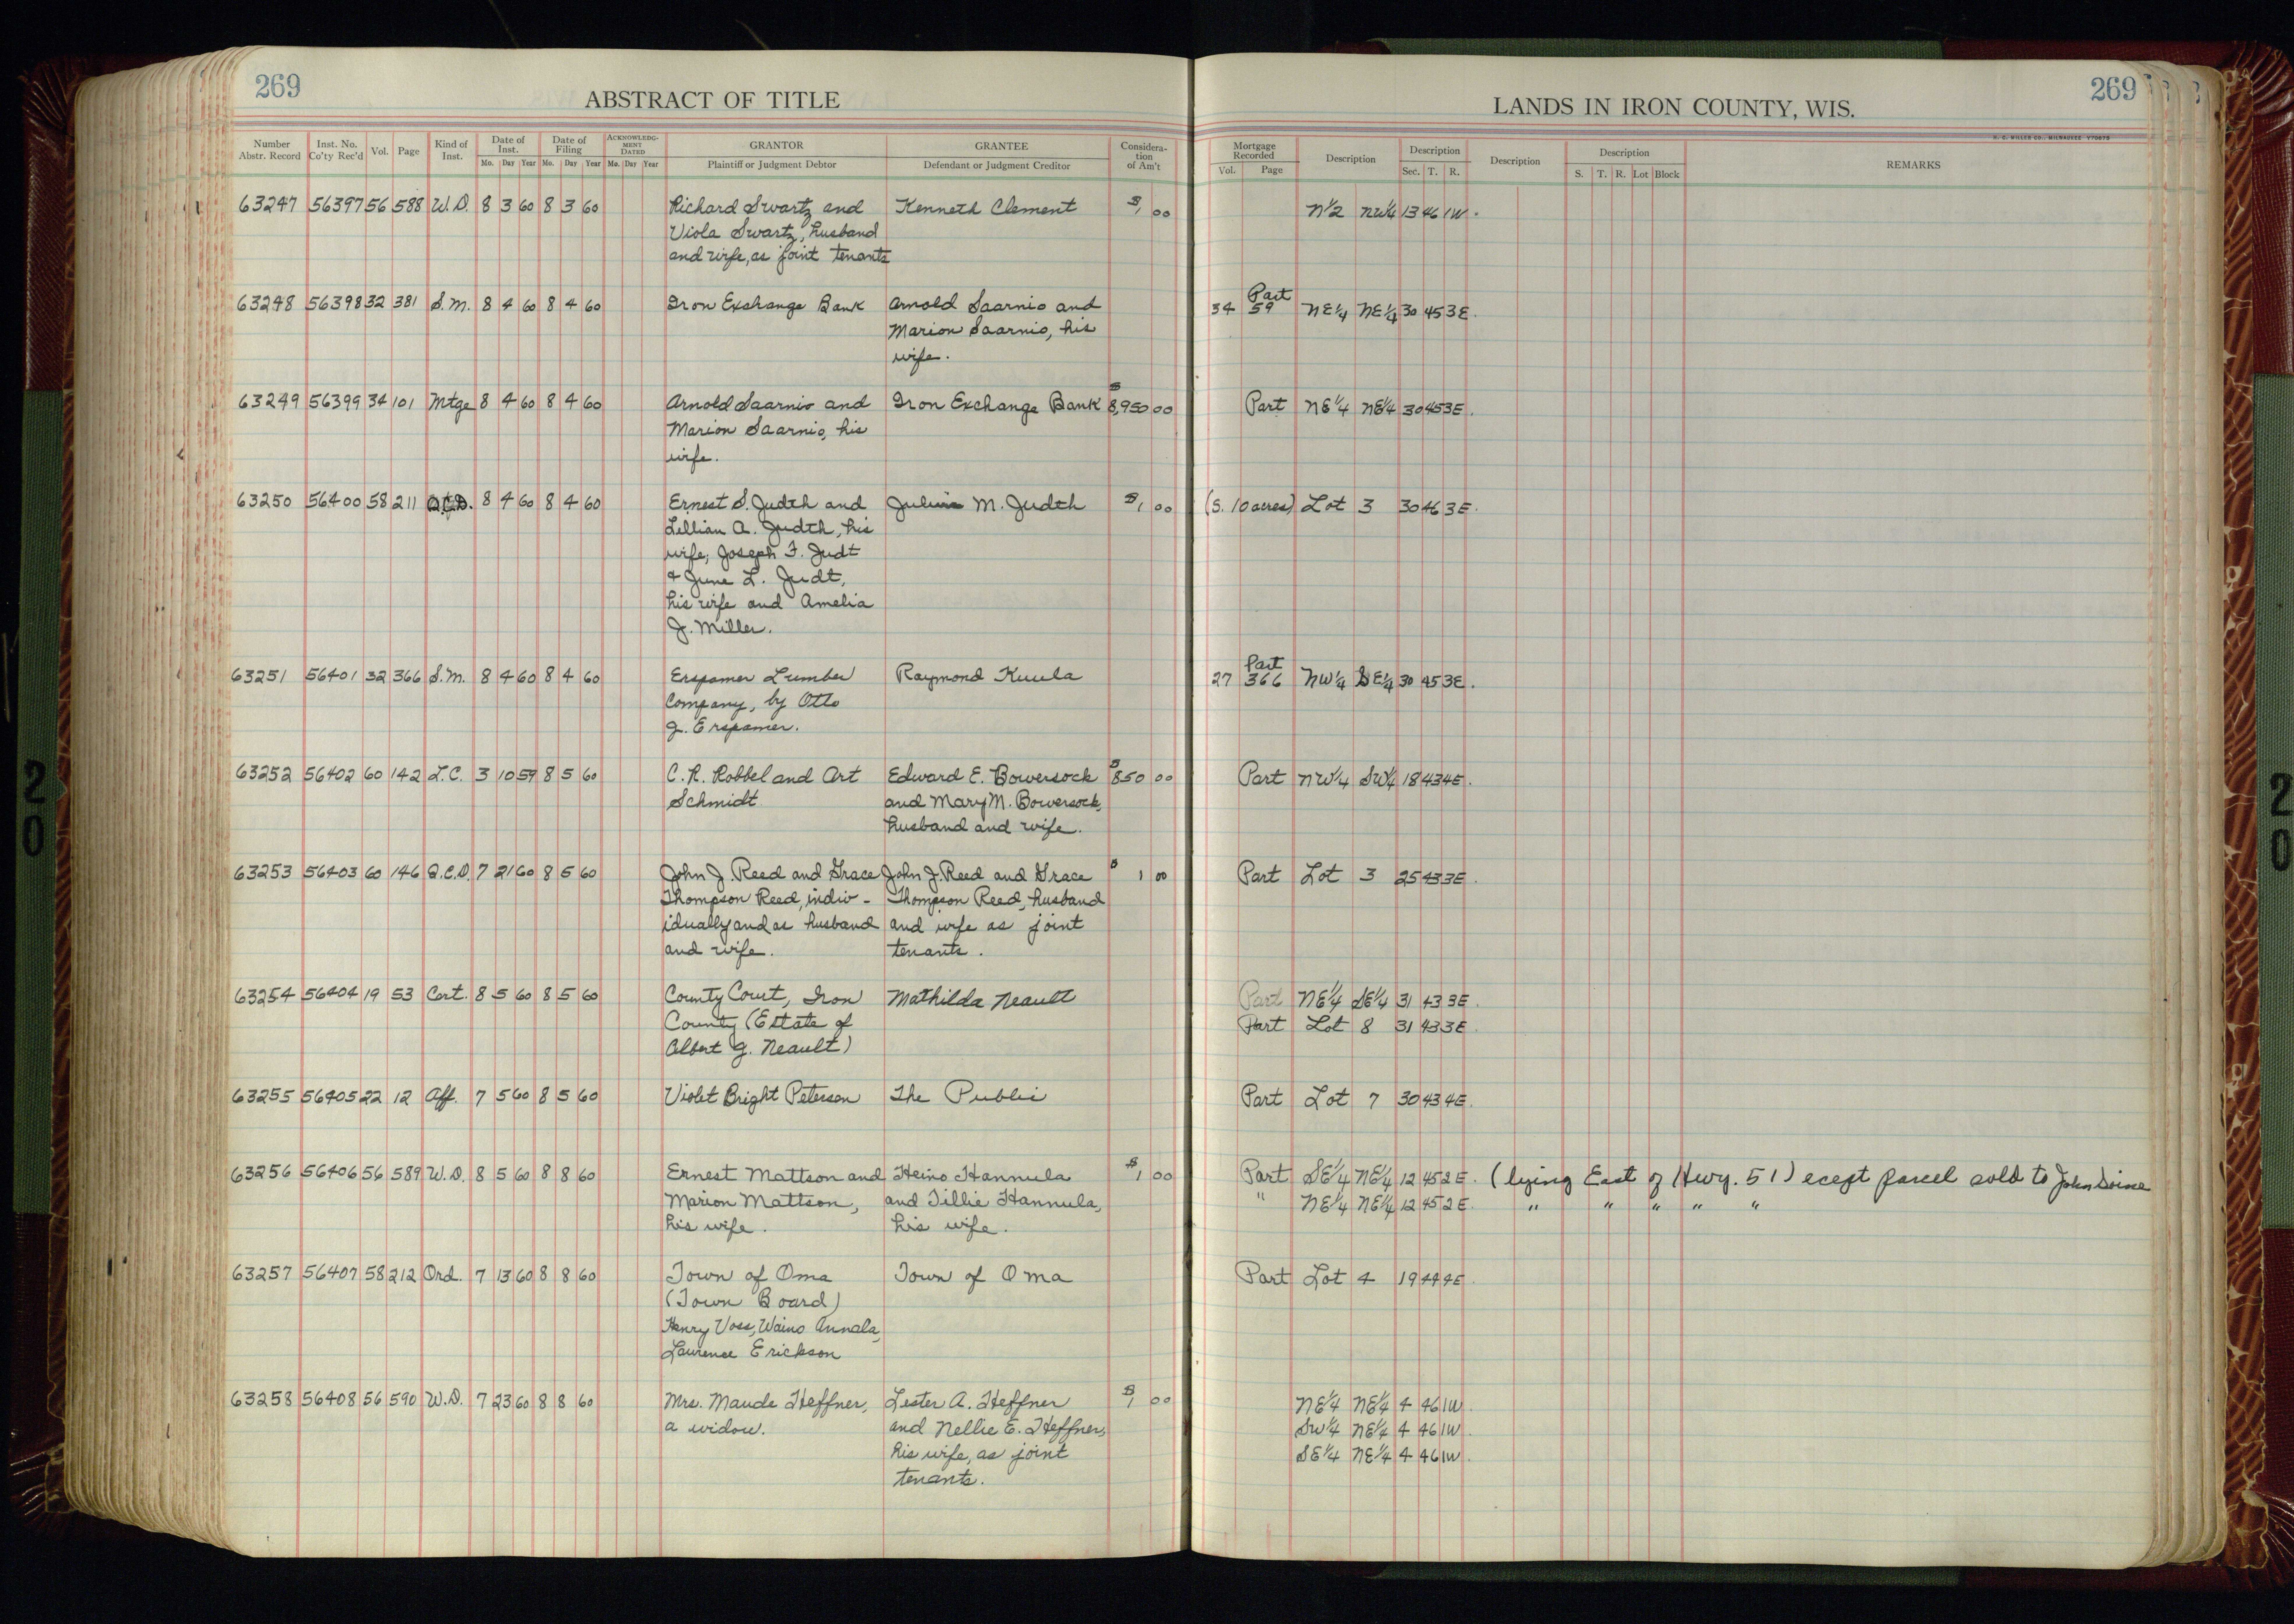 269
ABSTRACT OF TITLE
LANDS IN IRON COUNTY, WIS.
269
H. C. MILLER CO., MILWAUKEE V70873
Number Abstr. Record Inst. No. Co'ty Rec'd Vol. Page Kind of Inst. Date of Inst. Mo. Day Year Date of Filing Mo. Day Year ACKNOWLEDGMENT DATED Mo. Day Year GRANTOR Plaintiff or Judgment Debtor GRANTEE Defendant or Judgment Creditor Consideration of Am't Mortgage Recorded Vol. Page Description Description Sec. T. R. Description Description S. T. R. Lot Block REMARKS
63247 56397 56 588 W.D. 8 3 60 8 3 60 Richard Swartz and Kenneth Clement $1 00 N1/2 NW1/4 13 46 1W.
Viola Swartz, husband
and wife, as joint tenants
Part
63248 56398 32 381 S.M. 8 4 60 8 4 60 Iron Exchange Bank Arnold Saarnio and 34 59 NE1/4 NE1/4 30 45 3E.
Marion Saarnio, his
wife.
63249 56399 34 101 Mtge 8 4 60 8 4 60 Arnold Saarnio and Iron Exchange Bank $8,950 00 Part NE1/4 NE1/4 30 45 3E.
Marion Saarnio, his
wife.
63250 56400 58 211 Q.C.D. 8 4 60 8 4 60 Ernest S. Judth and M. Judth $1 00 (S. 10 acres) Lot 3 30 46 3E.
Lillian A. Judth, his
wife; Joseph F. Judt
+ June L. Judt,
his wife and Amelia
J. Miller.
Part
63251 56401 32 366 S.M. 8 4 60 8 4 60 Erspamer Lumber Raymond Kuula 27 366 NW1/4 SE1/4 30 45 3E.
Company, by Otto
G. Erspamer.
63252 56402 60 142 L.C. 3 10 59 8 5 60 C. R. Robbel and Art Edward E. Bowersock $850 00 Part NW1/4 SW1/4 18 43 4E.
Schmidt and Mary M. Bowersock,
husband and wife.
63253 56403 60 146 Q.C.D. 7 21 60 8 5 60 John J. Reed and Grace John J. Reed and Grace $1 00 Part Lot 3 25 43 3E.
Thompson Reed, indiv- Thompson Reed, husband
idually and as husband and wife as joint
and wife. tenants.
63254 56404 19 53 Cert. 8 5 60 8 5 60 County Court, Iron Mathilda Neault Part NE1/4 SE1/4 31 43 3E.
County (Estate of Part Lot 8 31 43 3E
Albert G. Neault)
63255 56405 22 12 Aff. 7 5 60 8 5 60 Violet Bright Peterson The Public Part Lot 7 30 43 4E.
63256 56406 56 589 W.D. 8 5 60 8 8 60 Ernest Mattson and Heino Hannula $1 00 Part SE1/4 NE1/4 12 45 2E. (lying East of Hwy. 51) ecept parcel sold to John
Marion Mattson, and Tillie Hannula, " NE1/4 NE1/4 12 45 2E. " " " " "
his wife. his wife.
63257 56407 58 212 Ord. 7 13 60 8 8 60 Town of Oma Town of Oma Part Lot 4 19 44 4E.
(Town Board)
Henry Voss, Waino Annala,
Laurence Erickson
63258 56408 56 590 W.D. 7 23 60 8 8 60 Mrs. Maude Heffner, Lester A. Heffner $1 00 NE1/4 NE1/4 4 46 1W.
a widow. and Nellie E. Heffner, SW1/4 NE1/4 4 46 1W.
his wife, as joint SE1/4 NE1/4 4 46 1W.
tenants.
20
20